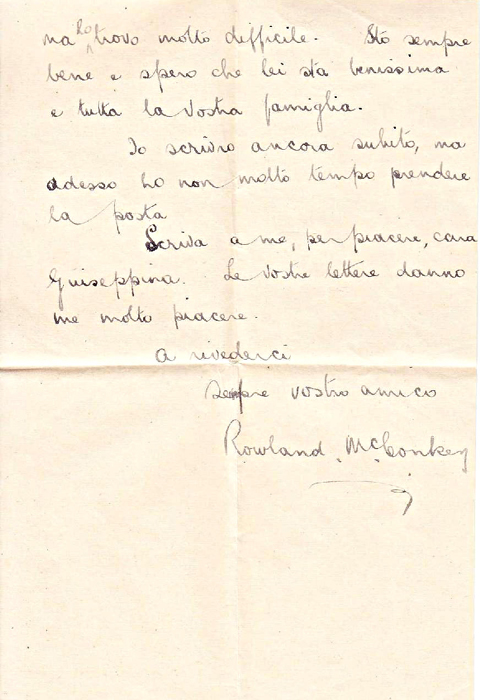 ma lo trovo molto difficile. Sto sempre
bene e spero che lei sta benissima
e tutta la vostra famiglia.
Io scrivro ancora subito, ma
adesso ho non molto tempo prendere
la posta
Scriva a me, per piacere, cara
Guiseppina. Le vostre lettere danno
me molto piacere.
A rivederci
sempre vostro amico
Rowland McConkey